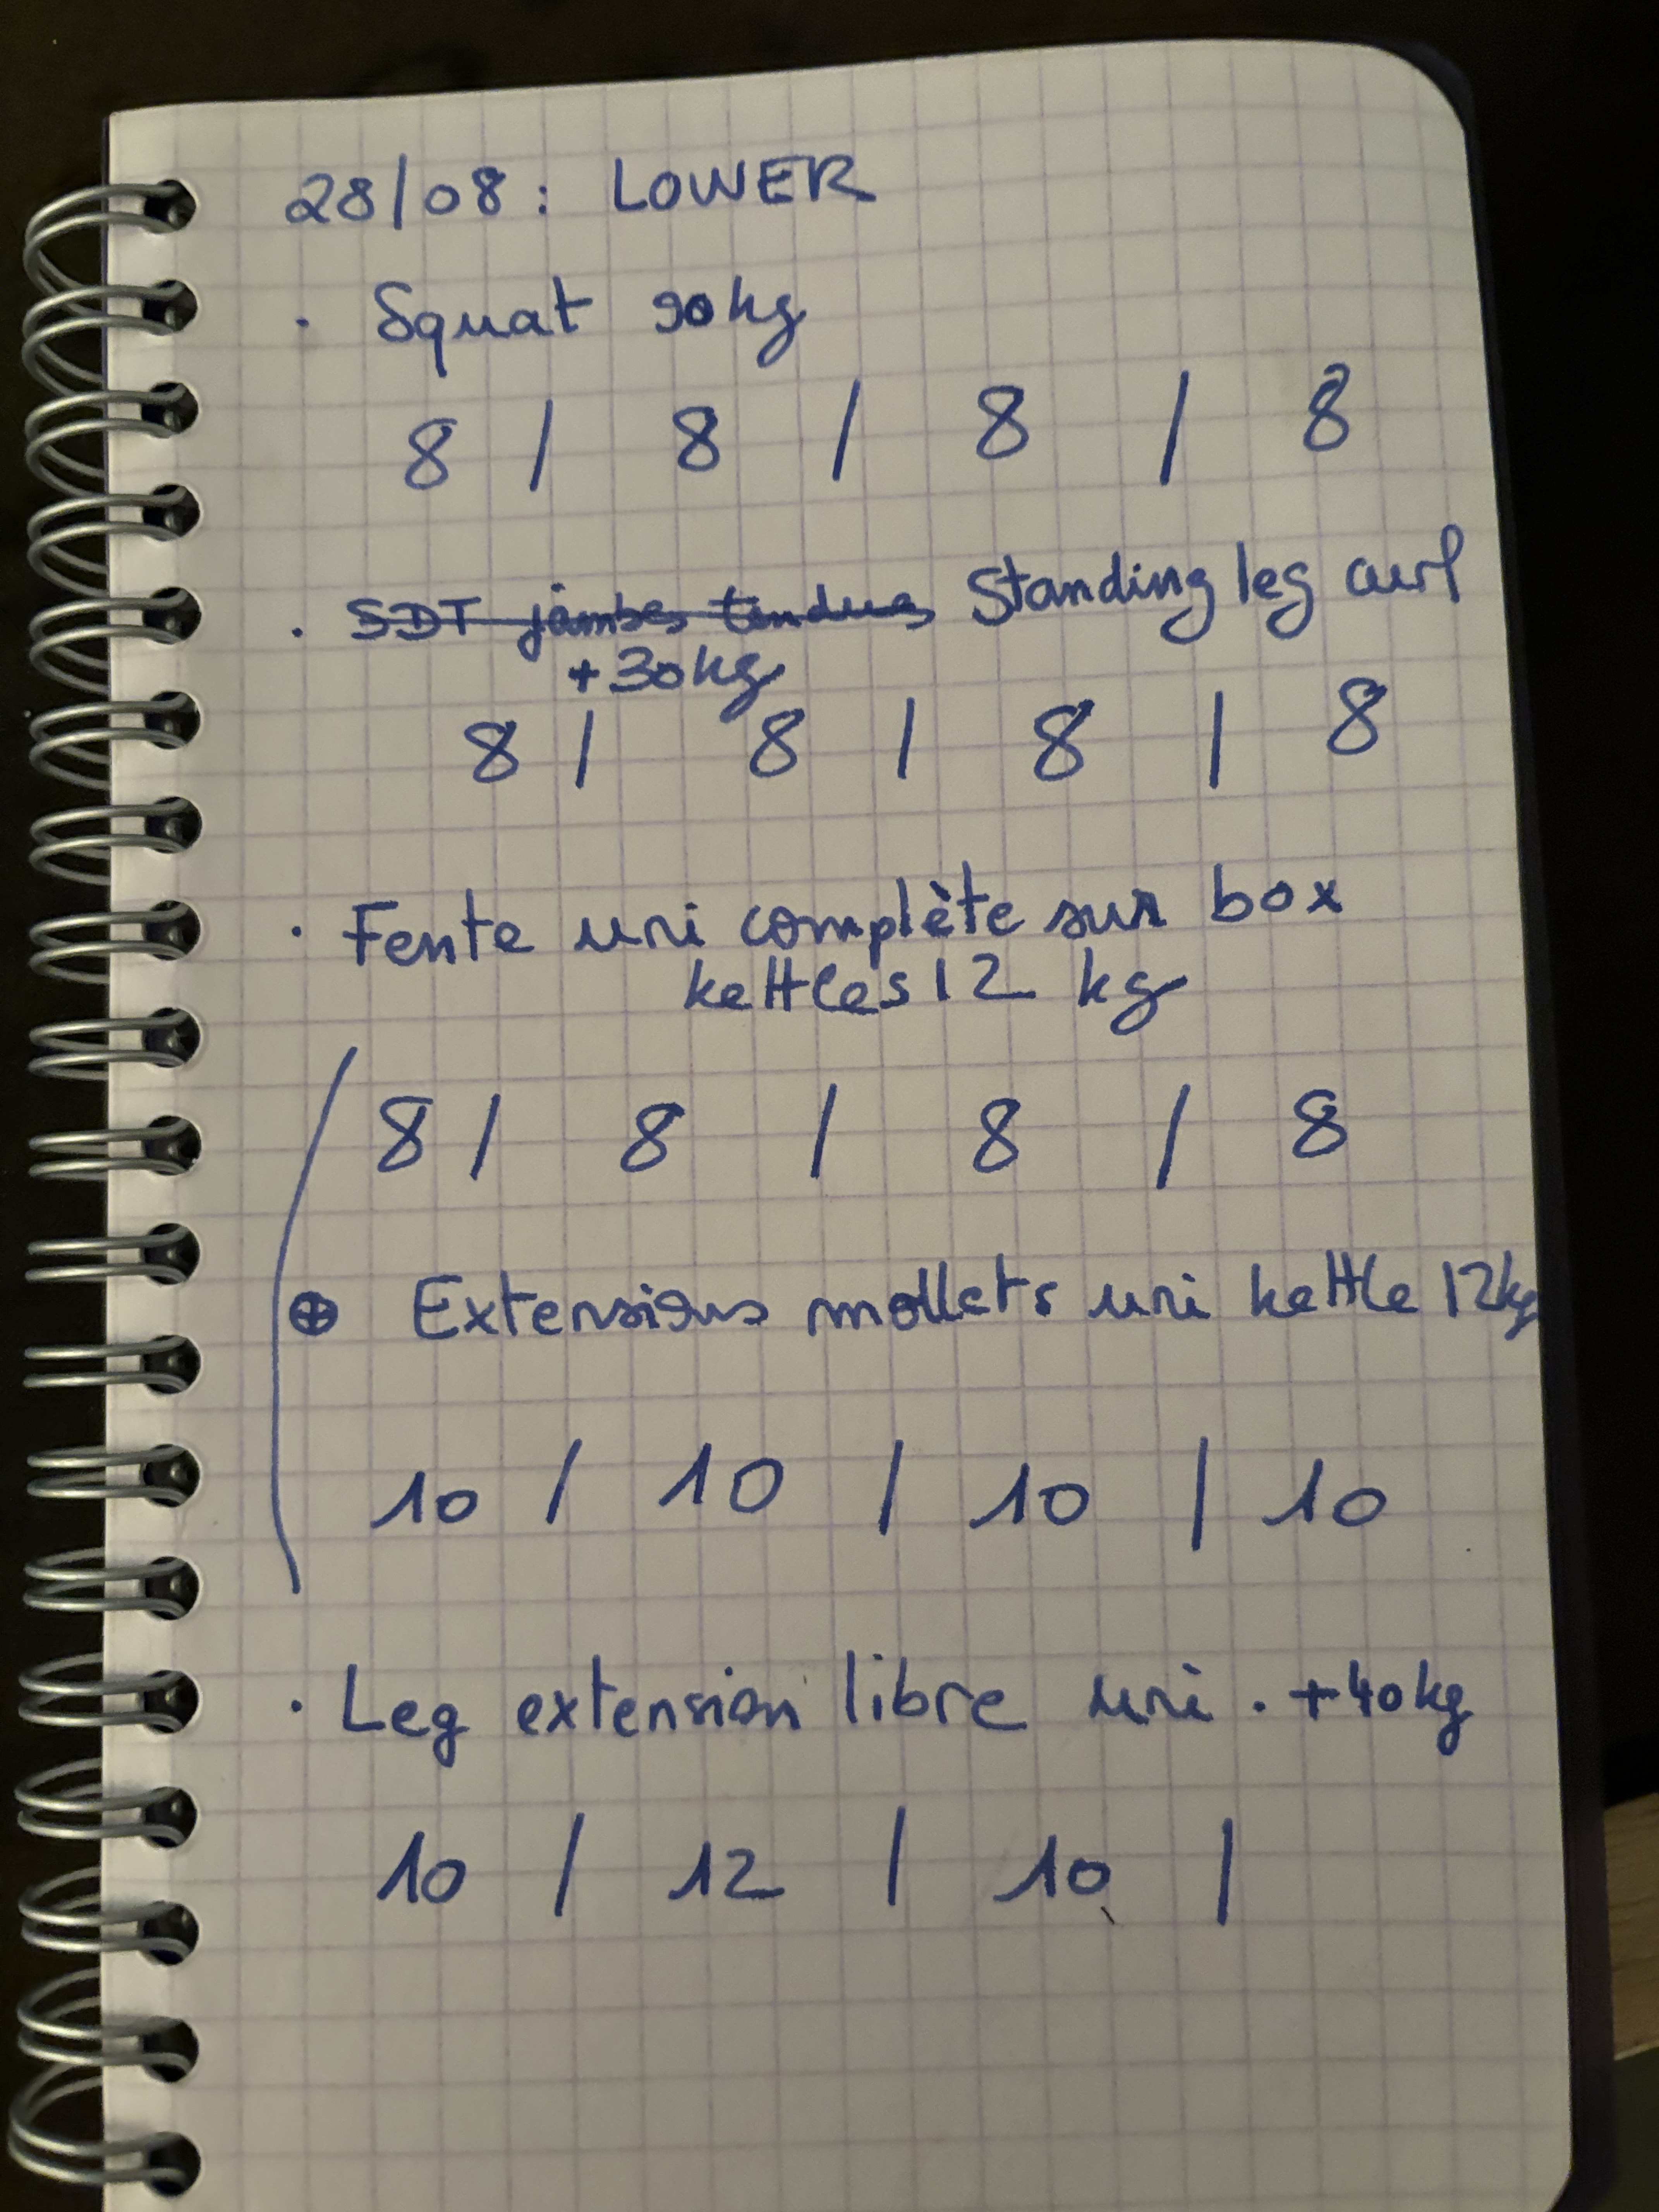 28/08 : LOWER
· Squat 90kg
8 / 8 / 8 / 8
· SDT jambes tendues Standing leg curl
+30kg
8 / 8 / 8 / 8
· Fente uni complète sur box
kettles 12 kg
8 / 8 / 8 / 8
⊕ Extensions mollets uni kettle 12kg
10 / 10 / 10 / 10
· Leg extension libre uni . +40kg
10 / 12 / 10 /